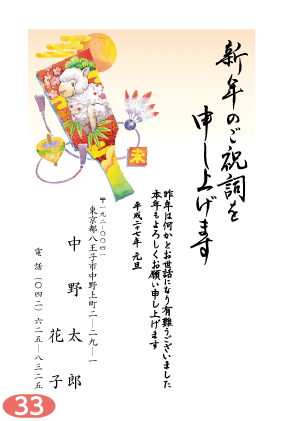 新年のご祝詞を
申し上げます
未
昨年は何かとお世話になり有難うございました
本年もよろしくお願い申し上げます
平成二十七年 元旦
〒一九二―〇〇四一
東京都八王子市中野上町二―二九―一
中野太郎
花子
電話(〇四二)六二五―八三二五
33